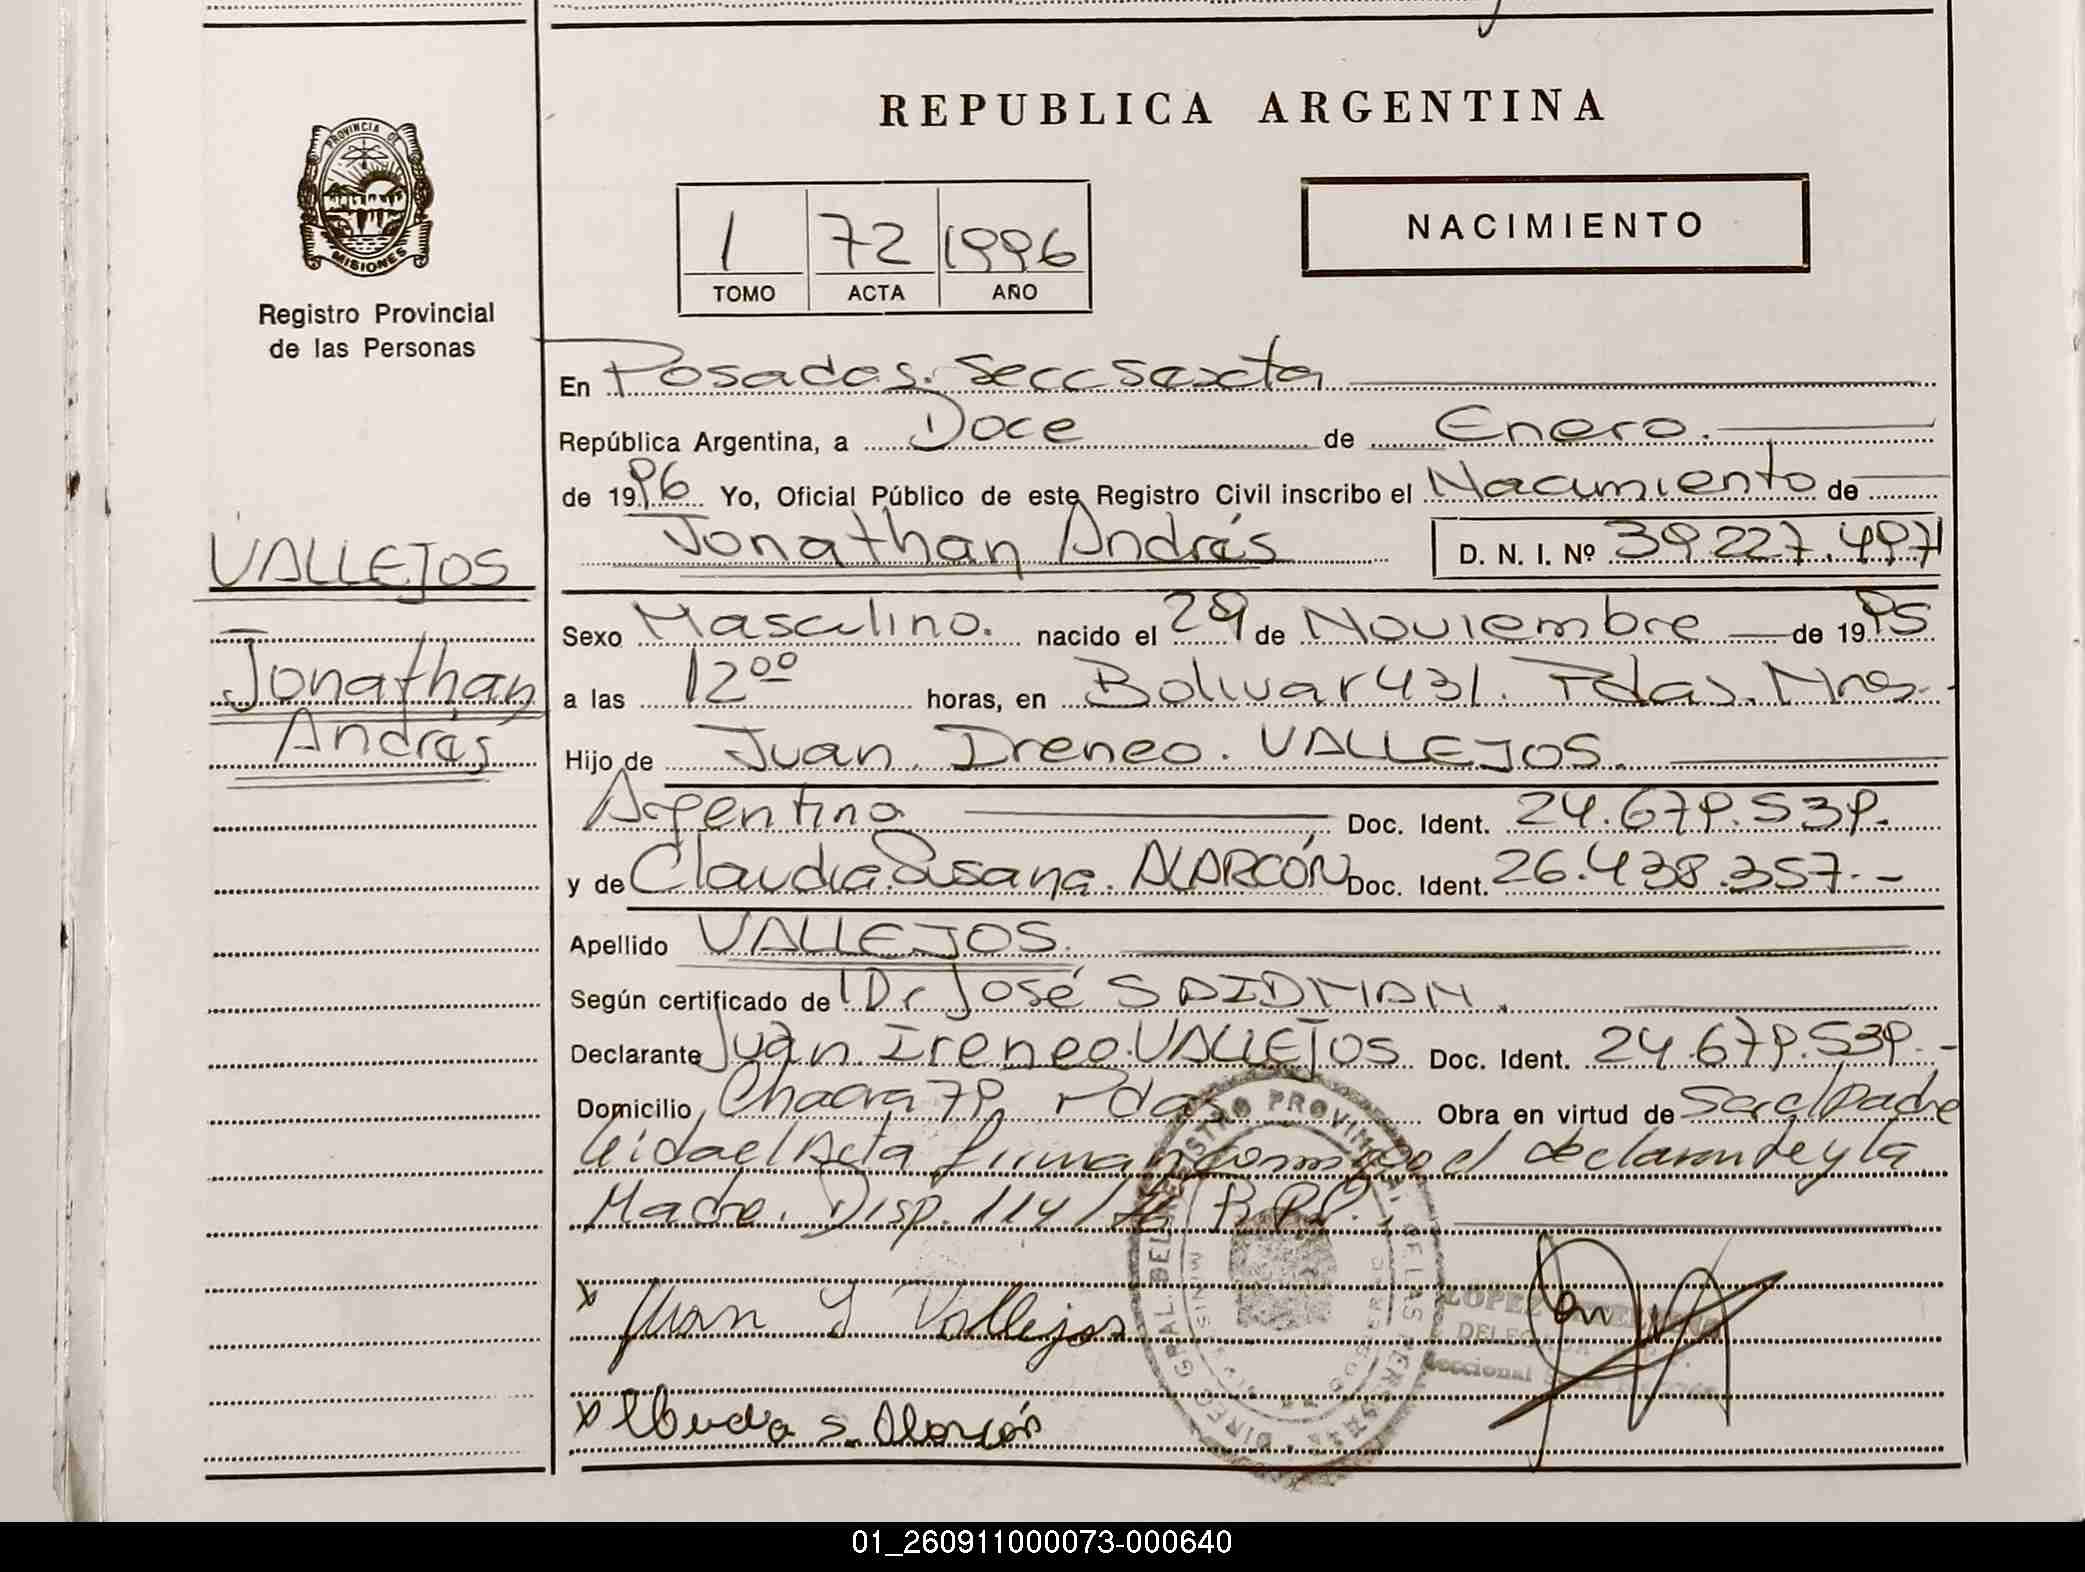 REPUBLICA ARGENTINA
PROVINCIA DE
MISIONES
Registro Provincial
de las Personas
1 72 1996
TOMO ACTA AÑO
NACIMIENTO
En Posadas. Secc Sexta
República Argentina, a Doce de Enero.
de 1996 Yo, Oficial Público de este Registro Civil inscribo el Nacimiento de
Jonathan Andrés D. N. I. Nº 39.227.497
VALLEJOS
Jonathan
Andrés
Sexo Masculino. nacido el 29 de Noviembre de 1995
a las 12ºº horas, en Bolivar 431. Pdas. Mnes.
Hijo de Juan Ireneo. VALLEJOS.
Argentina Doc. Ident. 24.679.539.
y de Claudia Susana. ALARCÓN Doc. Ident. 26.438.357.-
Apellido VALLEJOS.
Según certificado de Dr José SAIDMAN.
Declarante Juan Ireneo. VALLEJOS Doc. Ident. 24.679.539.-
Domicilio Chacra 79, Pdas Obra en virtud de Ser el Padre
leida el Acta firman conmigo el declarante y la
Madre. Disp. 114/76 R.P.P.
x Juan I Vallejos
LOPEZ
DELEGADA
Seccional
x Claudia S. Alarcón
01_260911000073-000640